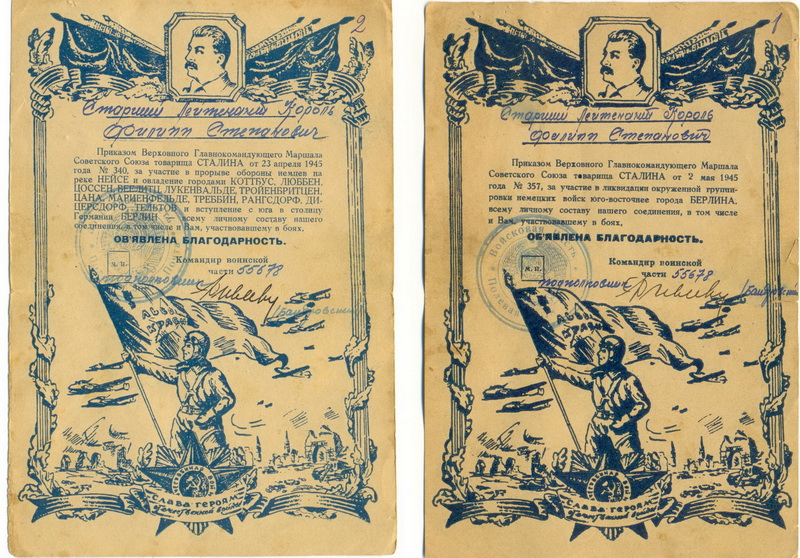 2
Старший Лейтенант Король
Филипп Степанович
Приказом Верховного Главнокомандующего Маршала
Советского Союза товарища СТАЛИНА от 23 апреля 1945
года № 340, за участие в прорыве обороны немцев на
реке НЕЙСЕ и овладение городами КОТТБУС, ЛЮББЕН,
ЦОССЕН, БЕЕЛИТЦ, ЛУКЕНВАЛЬДЕ, ТРОЙЕНБРИТЦЕН,
ЦАНА, МАРИЕНФЕЛЬДЕ, ТРЕББИН, РАНГСДОРФ, ДИ-
ДЕРСДОРФ, ТЕЛЬТОВ и вступление с юга в столицу
Германии БЕРЛИН всему личному составу нашего
соединения, в том числе и Вам, участвовавшему в боях,
ОБ'ЯВЛЕНА БЛАГОДАРНОСТЬ.
Командир воинской
части 55678
М. П.
подполковник
СЛАВА ГЕРОЯМ
Отечественной войны
1
Старший Лейтенант Король
Филипп Степанович
Приказом Верховного Главнокомандующего Маршала
Советского Союза товарища СТАЛИНА от 2 мая 1945
года № 357, за участие в ликвидации окруженной группи-
ровки немецких войск юго-восточнее города БЕРЛИНА,
всему личному составу нашего соединения, в том числе
и Вам, участвовавшему в боях,
ОБ'ЯВЛЕНА БЛАГОДАРНОСТЬ.
Войсковая часть
Полевая
Командир воинской
части 55678
М. П.
подполковник
СЛАВА ГЕРОЯМ
Отечественной войны